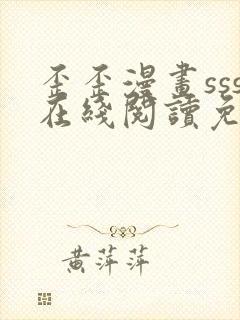 歪歪漫畫sss
在綫閱讀免
黃萍萍